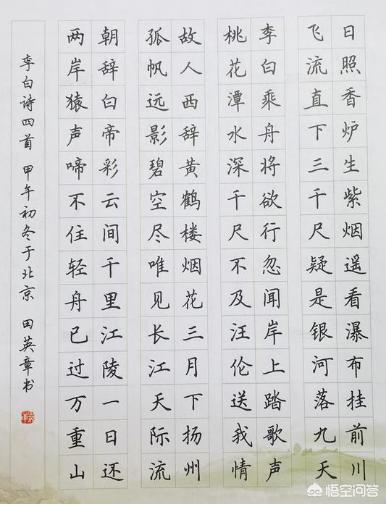 日照香炉生紫烟遥看瀑布挂前川
飞流直下三千尺疑是银河落九天
李白乘舟将欲行忽闻岸上踏歌声
桃花潭水深千尺不及汪伦送我情
故人西辞黄鹤楼烟花三月下扬州
孤帆远影碧空尽唯见长江天际流
朝辞白帝彩云间千里江陵一日还
两岸猿声啼不住轻舟已过万重山
李白诗四首 甲午初冬于北京 田英章书
悟空问答